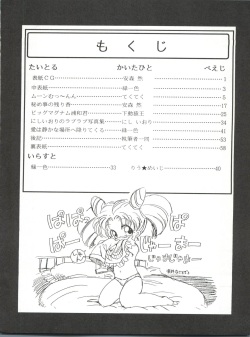 もくじ
たいとる かいたひと ぺえじ
表紙CG 安森 然 1
中表紙 緑一色 3
ムーンむっ～んん てくてく 5
秘め事の残り香 安森 然 17
ビッグマグナム浦和君 下動頭王 25
にしいおりのラブラブ写真館 にしいおり 34
愛は静かな場所へ降りてくる 緑一色 41
後記 執筆者一同 53
裏表紙 てくてく
いらすと
緑一色 33 りう★めいと 40
ぱぱぱー
ぱぱぱー
じゃーまー
じゃまじゃまー